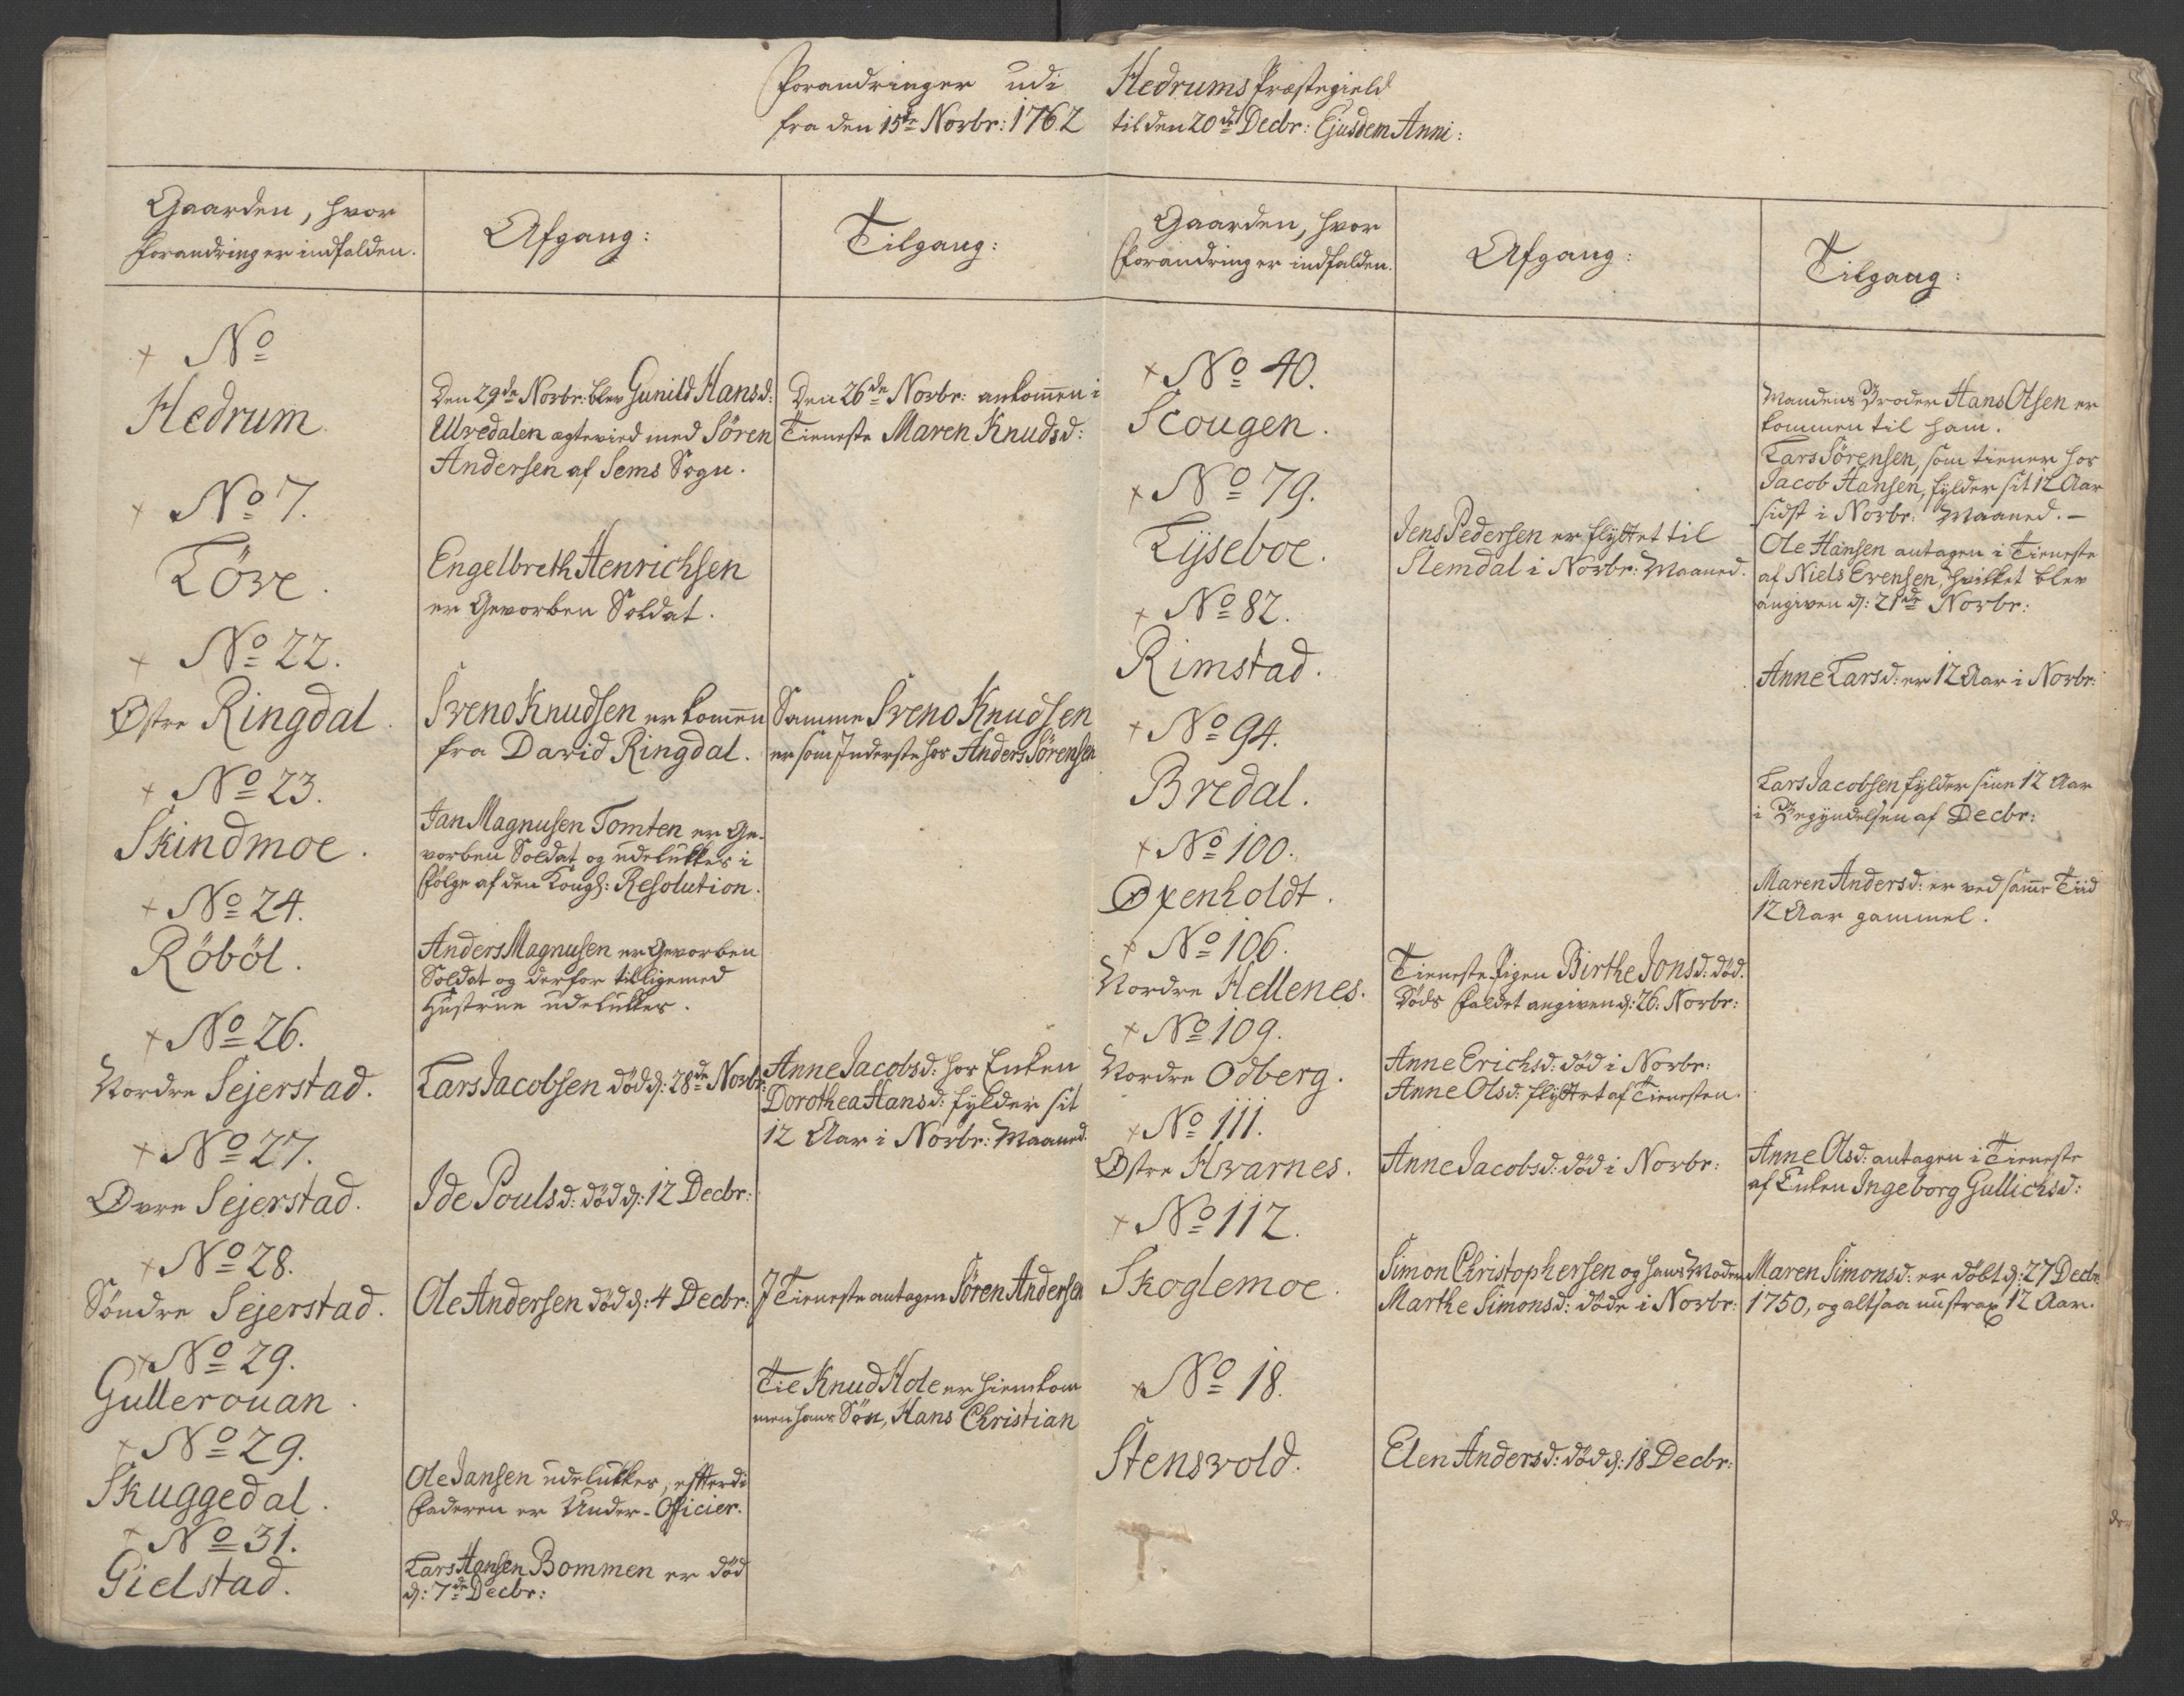 Forandringer udi Hedrums Præstegield
fra den 15de Novbr: 1762 til den 20de Decbr: Ejusdem Anni:
Gaarden, hvor
Forandringer indfalden.
Afgang:
Tilgang:
+ No
Hedrum
Den 29de Novbr: blev Gunild Hansd:
Ulvedalen ægtevied med Sören
Andersen af Sems Sogn.
Den 26de Novbr: ankom̄en i
Tieneste Maren Knudsd:
+ No 7.
Töve.
Engelbreth Henrichsen
er Gevorben Soldat.
+ No 22.
Østre Ringdal.
Sveno Knudsen er kom̄en
fra David Ringdal.
Samme Sveno Knudsen
er som Inderste hos Anders Sörensen
+ No 23.
Skindmoe.
Jan Magnusen Tomten er Ge-
vorben Soldat og udelukkes i
Følge af den Kongl: Resolution.
+ No 24.
Röböl.
Anders Magnusen er Gevorben
Soldat og derfor tilligemed
Hustrue udelukkes.
+ No 26.
Nordre Sejerstad.
Lars Jacobsen död d: 28de Novbr:
Anne Jacobsd: hos Enken
Dorothea Hansd: fylder sit
12 Aar i Novbr: Maaned.
+ No 27.
Øvre Sejerstad.
Ide Poulsd: död d: 12 Decbr:
+ No 28.
Søndre Sejerstad.
Ole Andersen död d: 4 Decbr:
J Tieneste antagen Sören Andersen
+ No 29.
Gullerouan.
Til Knud Hole er hiemkom
men hans Sön, Hans Christian
+ No 29.
Skuggedal.
Ole Jansen udelukkes, efterdi
Faderen er Under-Officier.
+ No 31.
Gielstad.
Lars Hansen Bommen er död
d: 7de Decbr:
Gaarden, hvor
Forandringer indfalden.
Afgang:
Tilgang:
+ No 40.
Scougen.
Mandens Broder Hans Olsen er
kommen til ham.
Lars Sörensen, som tiener hos
Jacob Hansen, fylder sit 12 Aar
sidst i Novbr: Maaned. -
+ No 79.
Lyseboe.
Jens Pedersen er flyttet til
Slemdal i Novbr: Maaned.
Ole Hansen antagen i Tieneste
af Niels Evensen, hvilket blev
angiven d: 21de Novbr:
+ No 82.
Rimstad.
Anne Larsd: er 12 Aar i Novbr:
+ No 94.
Bredal.
Lars Jacobsen fylder sine 12 Aar
i Begyndelsen af Decbr:
+ No 100.
Oxenholdt.
Maren Andersd: er ved sam̄e Tiid
12 Aar gammel.
+ No 106.
Nordre Hellenes.
Tieneste Pigen Birthe Jonsd: död.
Döds Faldet angiven d: 26. Novbr:
+ No 109.
Nordre Odberg.
Anne Erichsd: död i Novbr:
Anne Olsd: flyttet af Tienesten.
+ No 111.
Østre Hvarnes.
Anne Jacobsd: död i Novbr:
Anne Olsd: antagen i Tieneste
af Enken Ingeborg Gullichsd:
+ No 112.
Skoglemoe.
Simon Christophersen og hans Moder
Marthe Simonsd: döde i Novbr:
Maren Simonsd: er döbt d: 27 Decbr
1750, og altsaa nu strax 12 Aar.
+ No 18.
Stensvold.
Elen Andersd: död d: 18 Decbr: